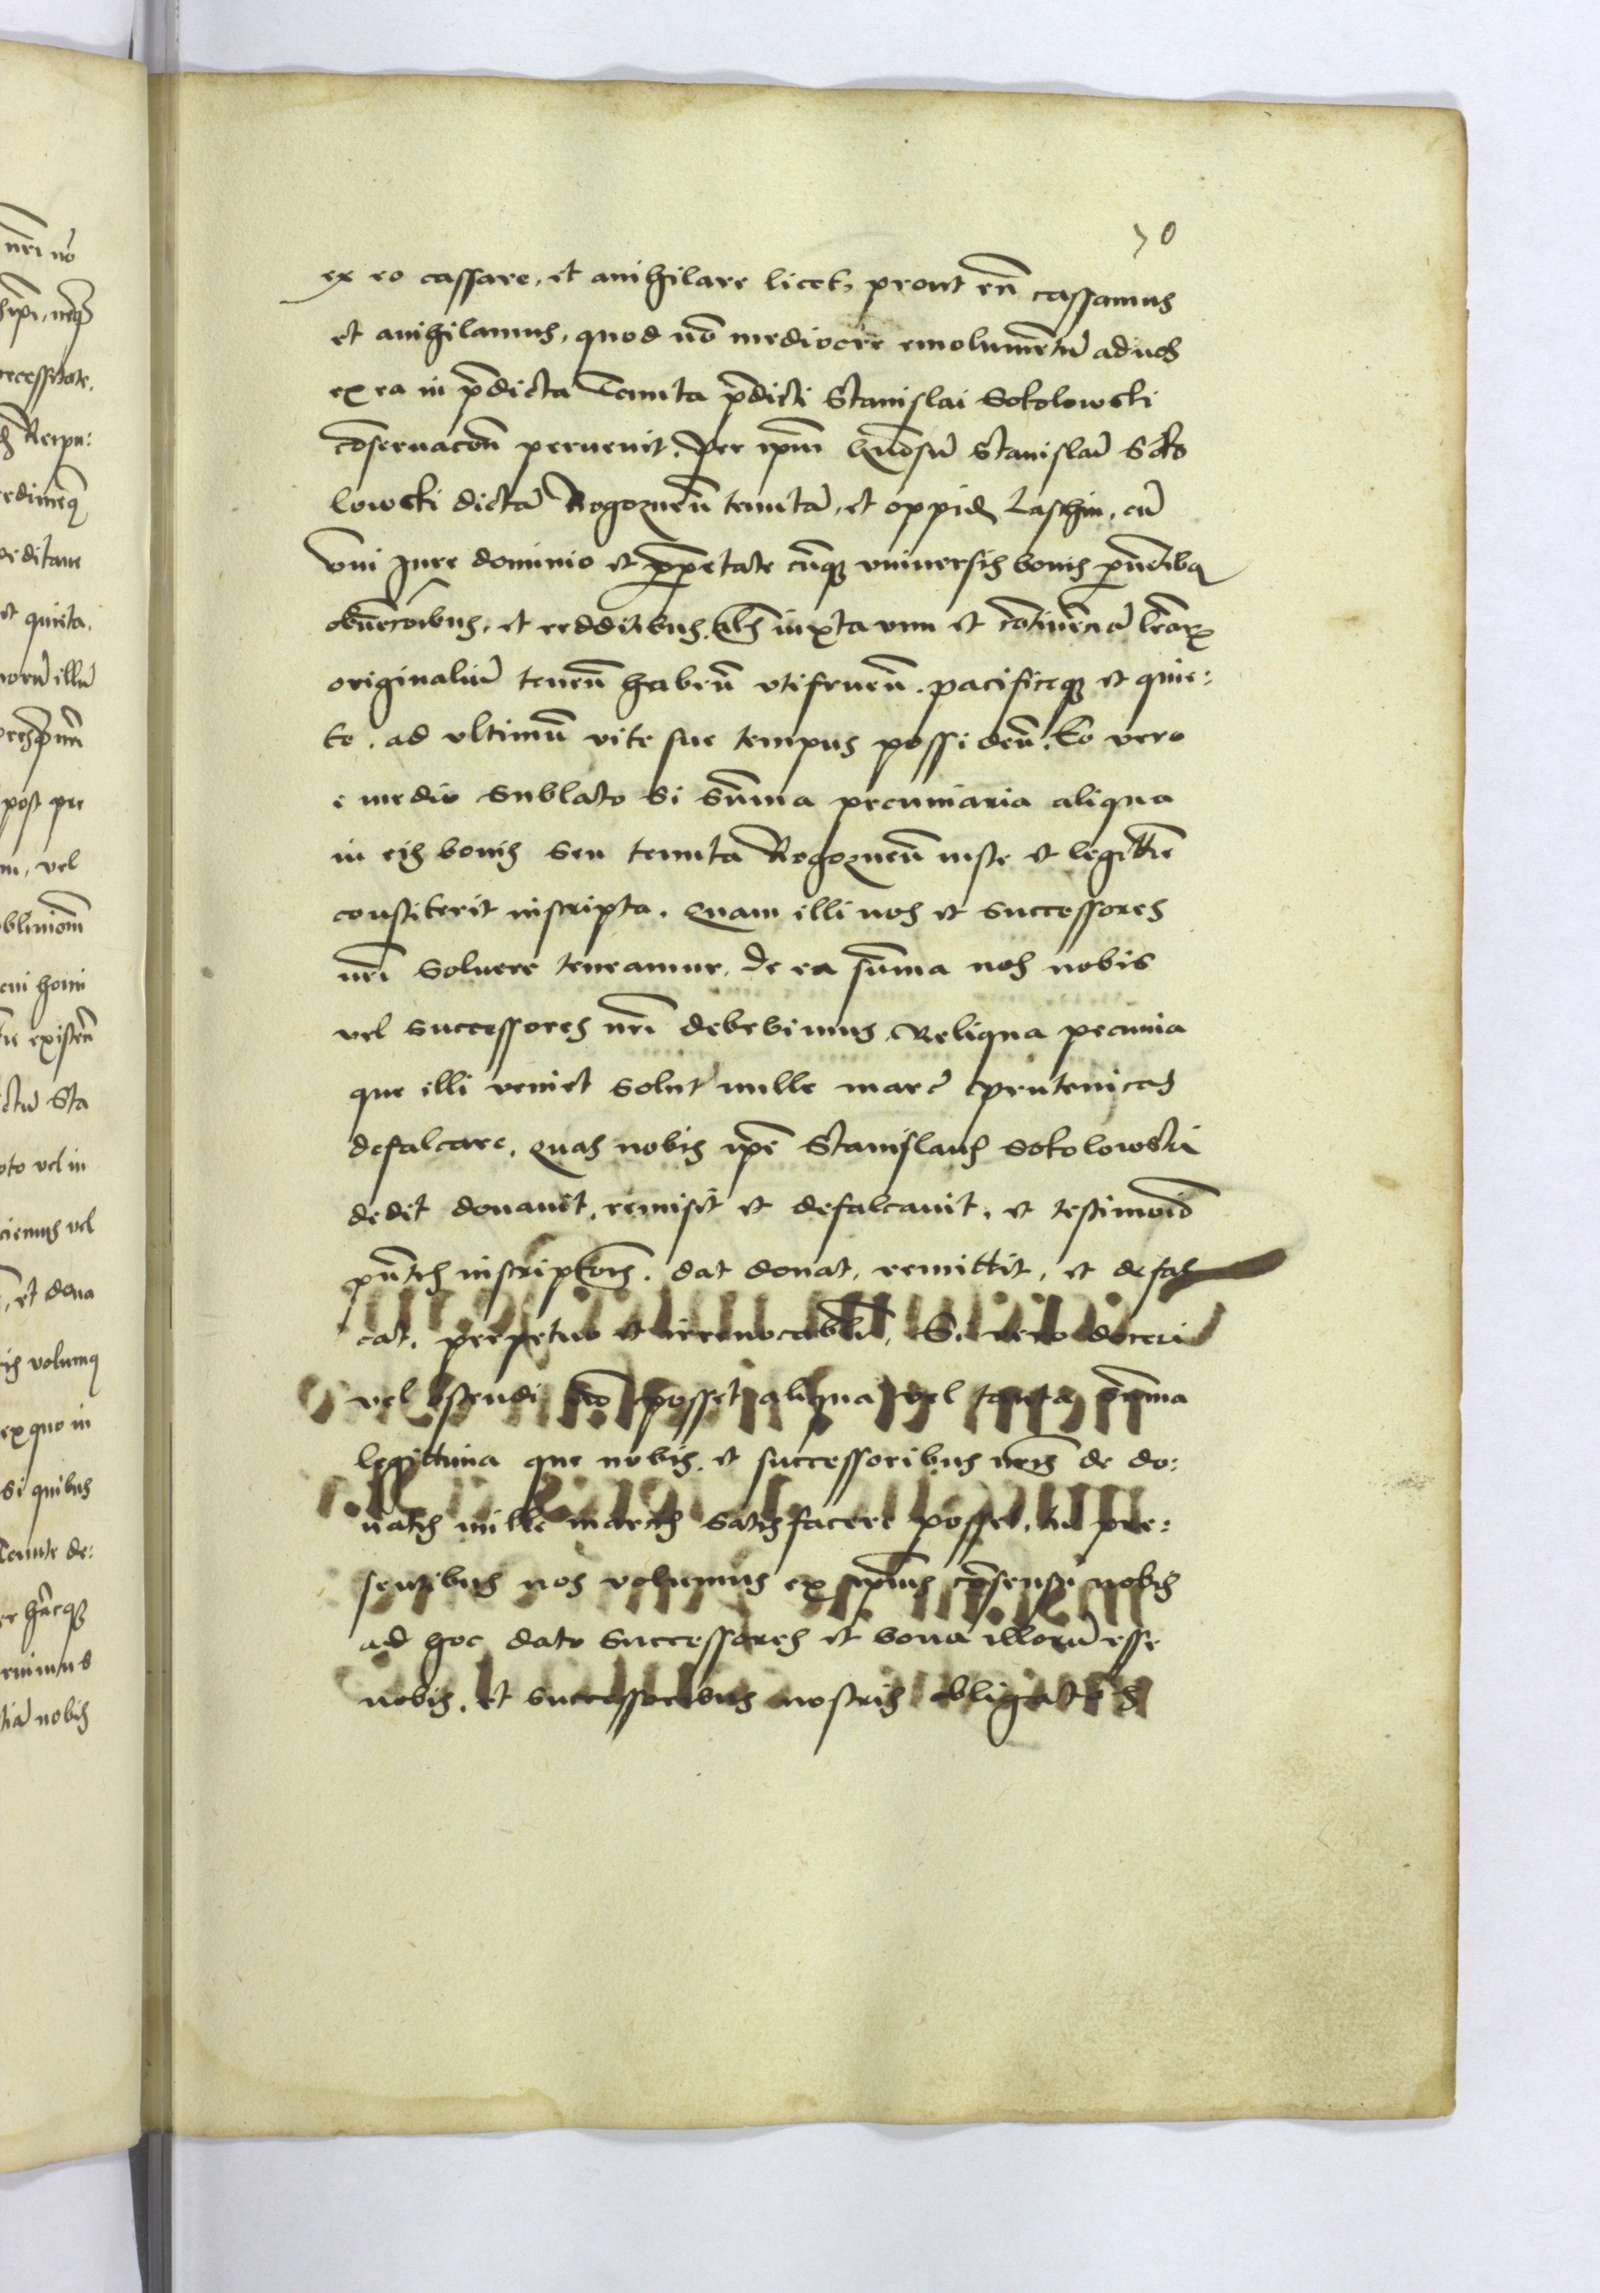 70
ex eo cassare, et anihilare licet, prout eñ cassamus
et anihilamus, quod nō mediocre emolumentū ad nos
ex ea in p̄dicta Tenuta p̄dicti Stanislai Sokolowski
cōservacoñ pervenit. Per ip̄m Stanislaū Soko
lowski dictā Rogozneñ tenutā, et oppid Laschin, cū
om̄i Jure dominio et p̄p̄etate cūq̨ universis bonis
obvēcōibus, et redditibus iuxta vim et cōtinēciā l̄rarꝝ
originaliū teneñ habeñ utifrueñ. pacificeq̨ et quie:
te. ad ultimū vite sue tempus possideñ. Eo vero
e medio sublato Si Sūma pecuniaria aliqua
in eis bonis seu tenuta Rogozneñ iuste et legittīe
constiterit inscripta. Quam illi nos et Successores
nr̄i Solvere teneamur. de ea sūma nos nobis
vel successores nr̄i debebimus. Reliqua pecunia
que illi veniet Solut mille marc prutenicas
defalcare. Quas nobis ip̄e Stanislaus Sokolowski
dedit donavit, remisit et defalcavit, et testimoīo
p̄ntis inscriptōis. dat donat, remittit, et defal
cat. perpetuo et irrevocabl̄r. Si vero doceri
vel ostendi nō posset aliqua vel tanta sūma
legittima que nobis et successoribus nr̄is de do:
natis mille marcis satisfacere posset. tū pre:
sentibus nos volumus ex ip̄ius cōsensu nobis
ad hoc dato Successores et bona illorū esse
nobis. et successoribus nostris obligatos